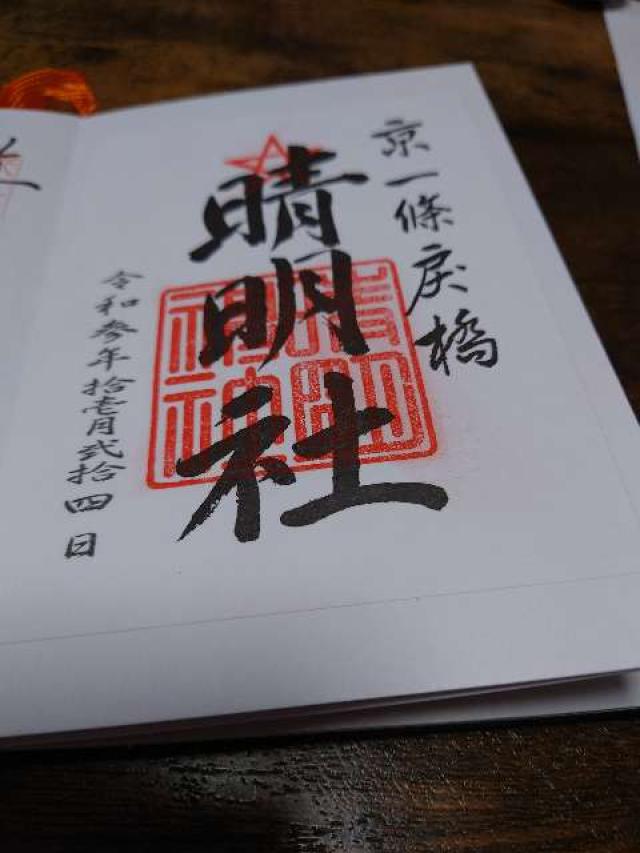 京一條戻橋
晴明社
晴明
神社
令和参年拾壱月弐拾四日